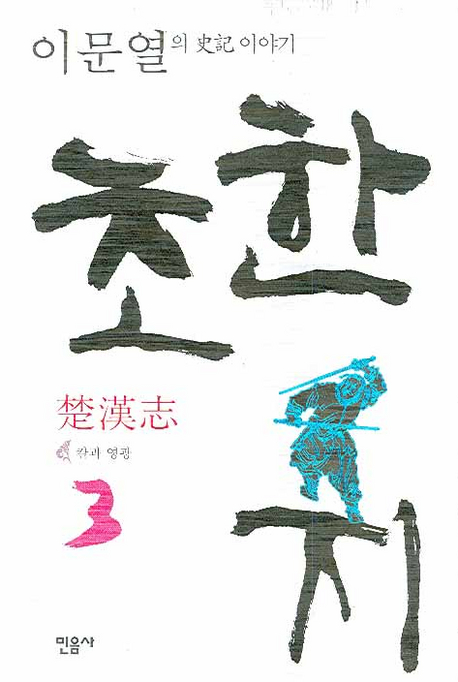 이문열의 史記 이야기
초한지
楚漢志
칼과 영광
3
민음사